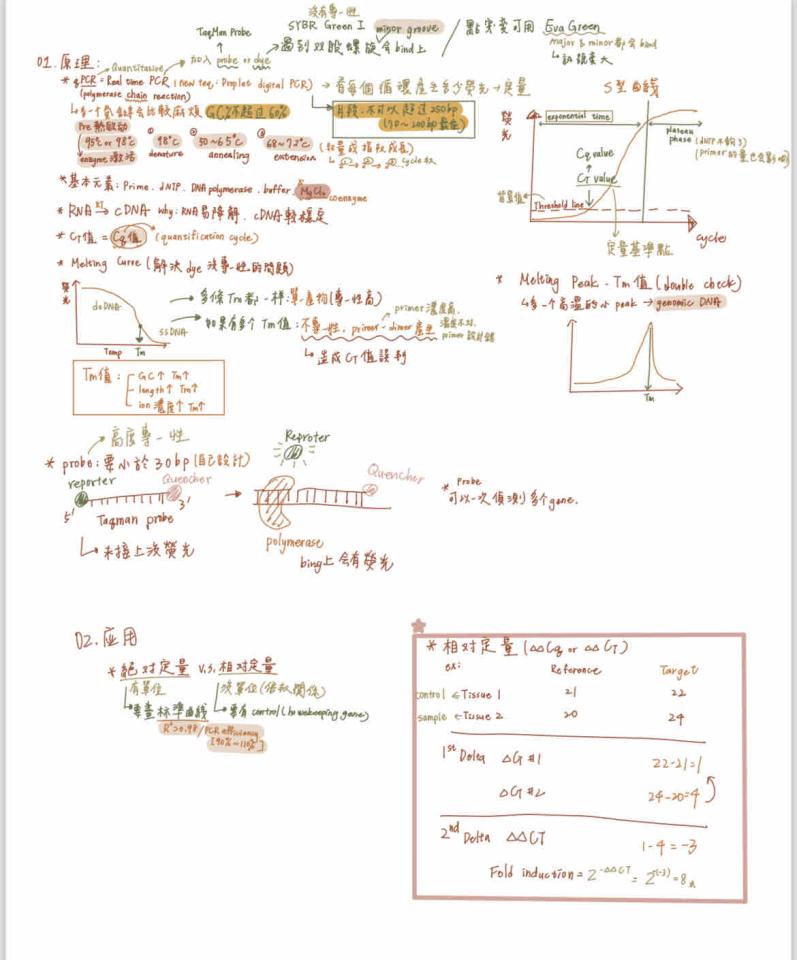 沒有專一性
TaqMan Probe
SYBR Green I minor groove
遇到双股螺旋會bind上
點突变可用 Eva Green
major & minor都會bind
訊號更大
01. 原理:
Quantitative 加入 probe or dye
* qPCR = Real time PCR (new teq: Droplet digital PCR) → 看每個循環產生多少螢光→定量
(polymerase chain reaction)
多一个氫鍵會比較麻煩 GC%不超过60%
片段:不可以超过250bp
(70~200bp最佳)
Pre 熱啟動
95℃ or 98℃
enzyme 激活
① 98℃
denature
② 50~65℃
annealing
③ 68~72℃
extension
(数量成指数成長)
cycle数
S型曲线
螢光
exponential time
plateau phase (dNTP不夠了)
(primer的量也会影响)
Cq value
CT value
背景值
Threshold line
cycle
定量基準點
* 基本元素: Prime . dNTP . DNA polymerase . buffer . MgCl2
coenzyme
* RNA RT→ cDNA why: RNA易降解. cDNA較穩定
* CT值 = Cq值 (quantification cycle)
* Melting Curve (解決dye沒專一性的問題)
螢光
dsDNA
ssDNA
Temp Tm
多條Tm都一样:單產物(專一性高)
如果有多个Tm值: 不專一性, primer-dimer產生
primer濃度高,
溫度不对,
primer設計錯
造成CT值誤判
* Melting Peak - Tm值 (double check)
多一个高溫的小peak → genomic DNA
Tm
Tm值:
GC↑ Tm↑
length↑ Tm↑
ion濃度↑ Tm↑
高度專一性
* probe: 要小於30bp (自己設計)
reporter Quencher
5' 3'
Taqman probe
未接上沒螢光
Reproter
Quencher
polymerase
bing上會有熒光
* Probe
可以一次偵測多个gene.
02. 应用
* 絕对定量 v.s. 相对定量
有單位
沒單位(倍数關係)
要畫標準曲線
要有control (housekeeping gene)
R²>0.98 / PCR efficiency
[90%~110%]
* 相对定量 (△△Cq or △△CT)
ex: Reference Target
control ← Tissue 1 21 22
sample ← Tissue 2 20 24
1st Delta △CT #1 22-21=1
△CT #2 24-20=4
2nd Delta △△CT 1-4=-3
Fold induction = 2^-△△CT = 2^-(-3) = 8